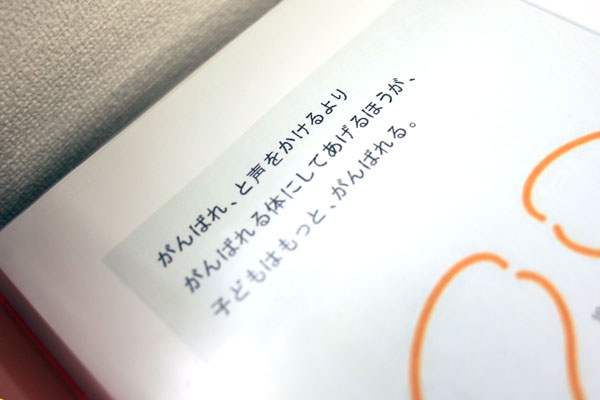 がんばれ、と声をかけるより
がんばれる体にしてあげるほうが、
子どもはもっと、がんばれる。